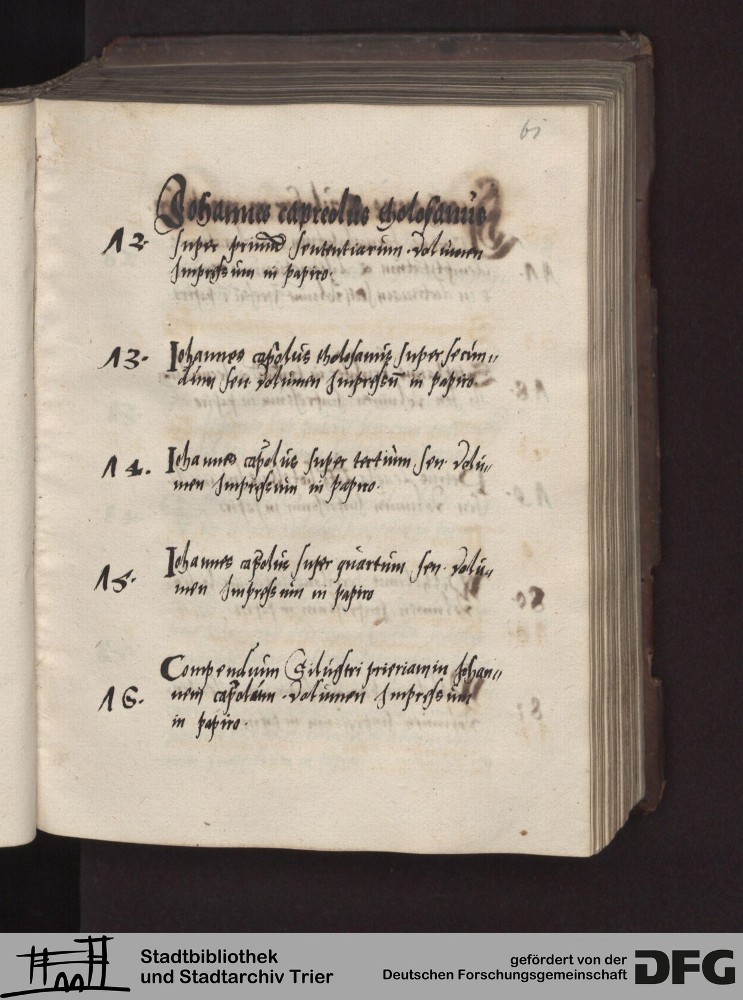 61
Johannes capreolus tholosanus
12. super primū sententiarum. volumen
Impressum in papiro.
13. Iohannes capolus tholosanus super secun„
dum sen volumen Impressū in papiro.
14. Iohannes capolus super tertium sen. volu„
men Impressum in papiro.
15. Iohannes capolus super quartum sen. volu„
men Impressum in papiro
Compendium Siluestri prieriam in Johan„
16. nem capolum. volumen Impressum
in papiro.
Stadtbibliothek
und Stadtarchiv Trier
gefördert von der
Deutschen Forschungsgemeinschaft
DFG